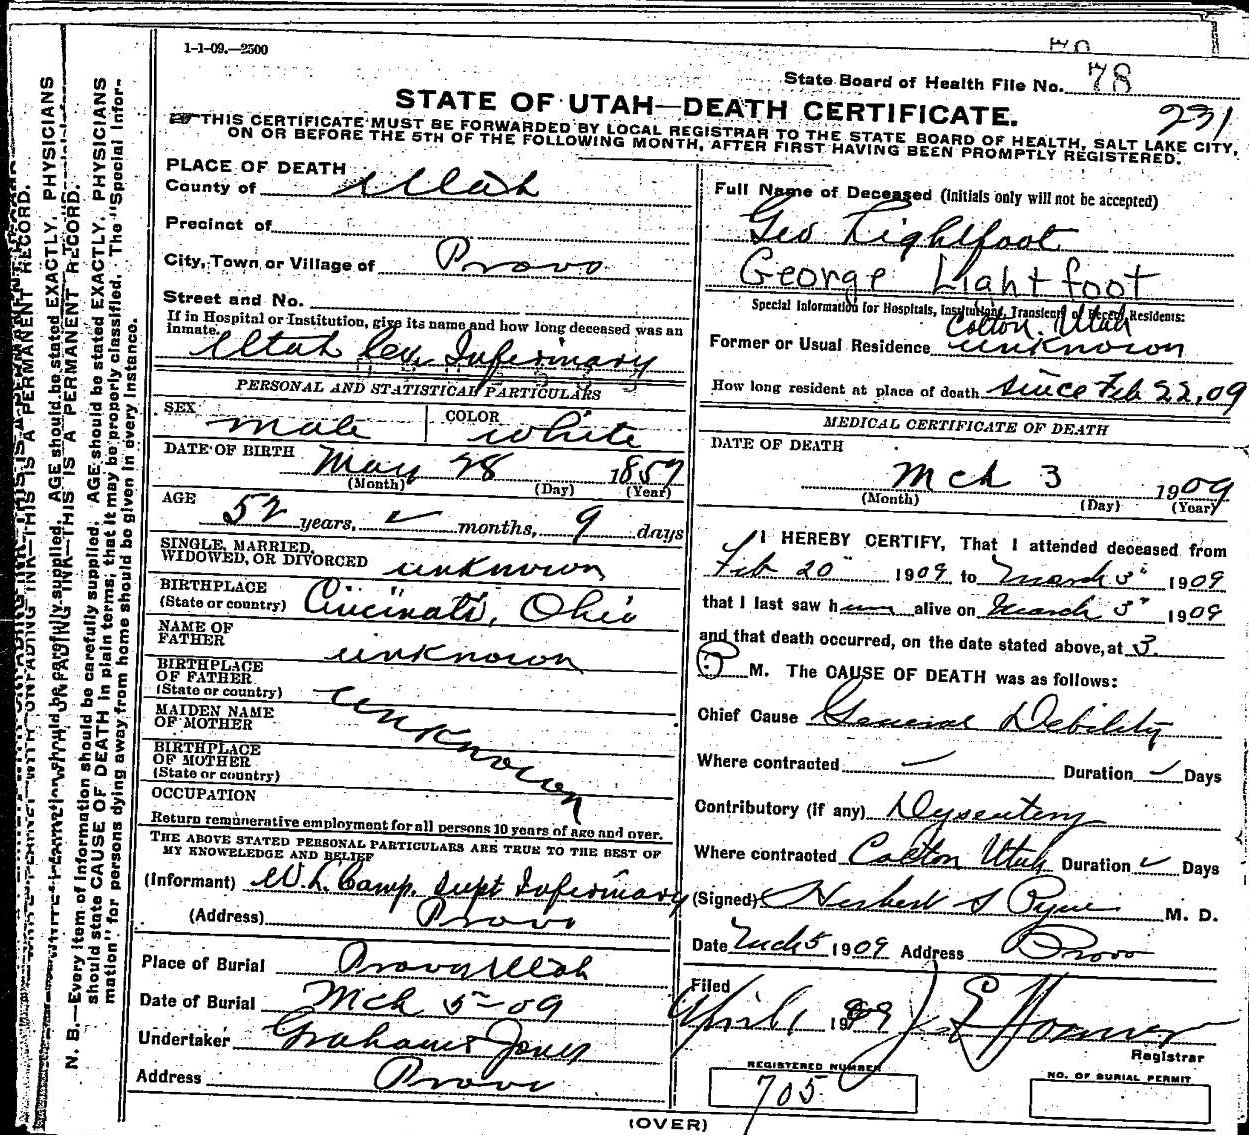 1-1-09.—2500
State Board of Health File No. 78
231
STATE OF UTAH—DEATH CERTIFICATE.
THIS CERTIFICATE MUST BE FORWARDED BY LOCAL REGISTRAR TO THE STATE BOARD OF HEALTH, SALT LAKE CITY,
ON OR BEFORE THE 5TH OF THE FOLLOWING MONTH, AFTER FIRST HAVING BEEN PROMPTLY REGISTERED.
PLACE OF DEATH
County of Utah
Precinct of
City, Town or Village of Provo
Street and No.
If in Hospital or Institution, give its name and how long deceased was an
inmate.
Utah Co. Infirmary
PERSONAL AND STATISTICAL PARTICULARS
SEX male COLOR white
DATE OF BIRTH May 28 1857
(Month) (Day) (Year)
AGE 52 years, months, 9 days
SINGLE, MARRIED,
WIDOWED, OR DIVORCED unknown
BIRTHPLACE
(State or country) Cincinati, Ohio
NAME OF
FATHER unknown
BIRTHPLACE
OF FATHER
(State or country) unknown
MAIDEN NAME
OF MOTHER
BIRTHPLACE
OF MOTHER
(State or country)
OCCUPATION
Return remunerative employment for all persons 10 years of age and over.
THE ABOVE STATED PERSONAL PARTICULARS ARE TRUE TO THE BEST OF
MY KNOWELEDGE AND BELIEF
(Informant) W. L. Camp. Supt Infirmary
(Address) Provo
Place of Burial Provo Utah
Date of Burial Mch 5-09
Undertaker Graham & Jones
Address Provo
Full Name of Deceased (initials only will not be accepted)
Geo Lightfoot
George Lightfoot
Special Information for Hospitals, Institutions, Transients or Recent Residents:
Colton. Utah
Former or Usual Residence unknown
How long resident at place of death since Feb 22, 09
MEDICAL CERTIFICATE OF DEATH
DATE OF DEATH
Mch 3 1909
(Month) (Day) (Year)
I HEREBY CERTIFY, That I attended deceased from
Feb 20" 1909 to March 3" 1909
that I last saw him alive on March 3" 1909
and that death occurred, on the date stated above, at 3.
P. M. The CAUSE OF DEATH was as follows:
Chief Cause General Debility
Where contracted Duration Days
Contributory (if any) Dysentery
Where contracted Colton Utah Duration Days
(Signed) Herbert S Pyne M. D.
Date Mch 5 1909 Address Provo
Filed
April 1 1909
Registrar
REGISTERED NUMBER
705
NO. OF BURIAL PERMIT
(OVER)
N. B.—Every item of information should be carefully supplied. AGE should be stated EXACTLY. PHYSICIANS
should state CAUSE OF DEATH in plain terms, that it may be properly classified. The "Special Infor-
mation" for persons dying away from home should be given in every instance.